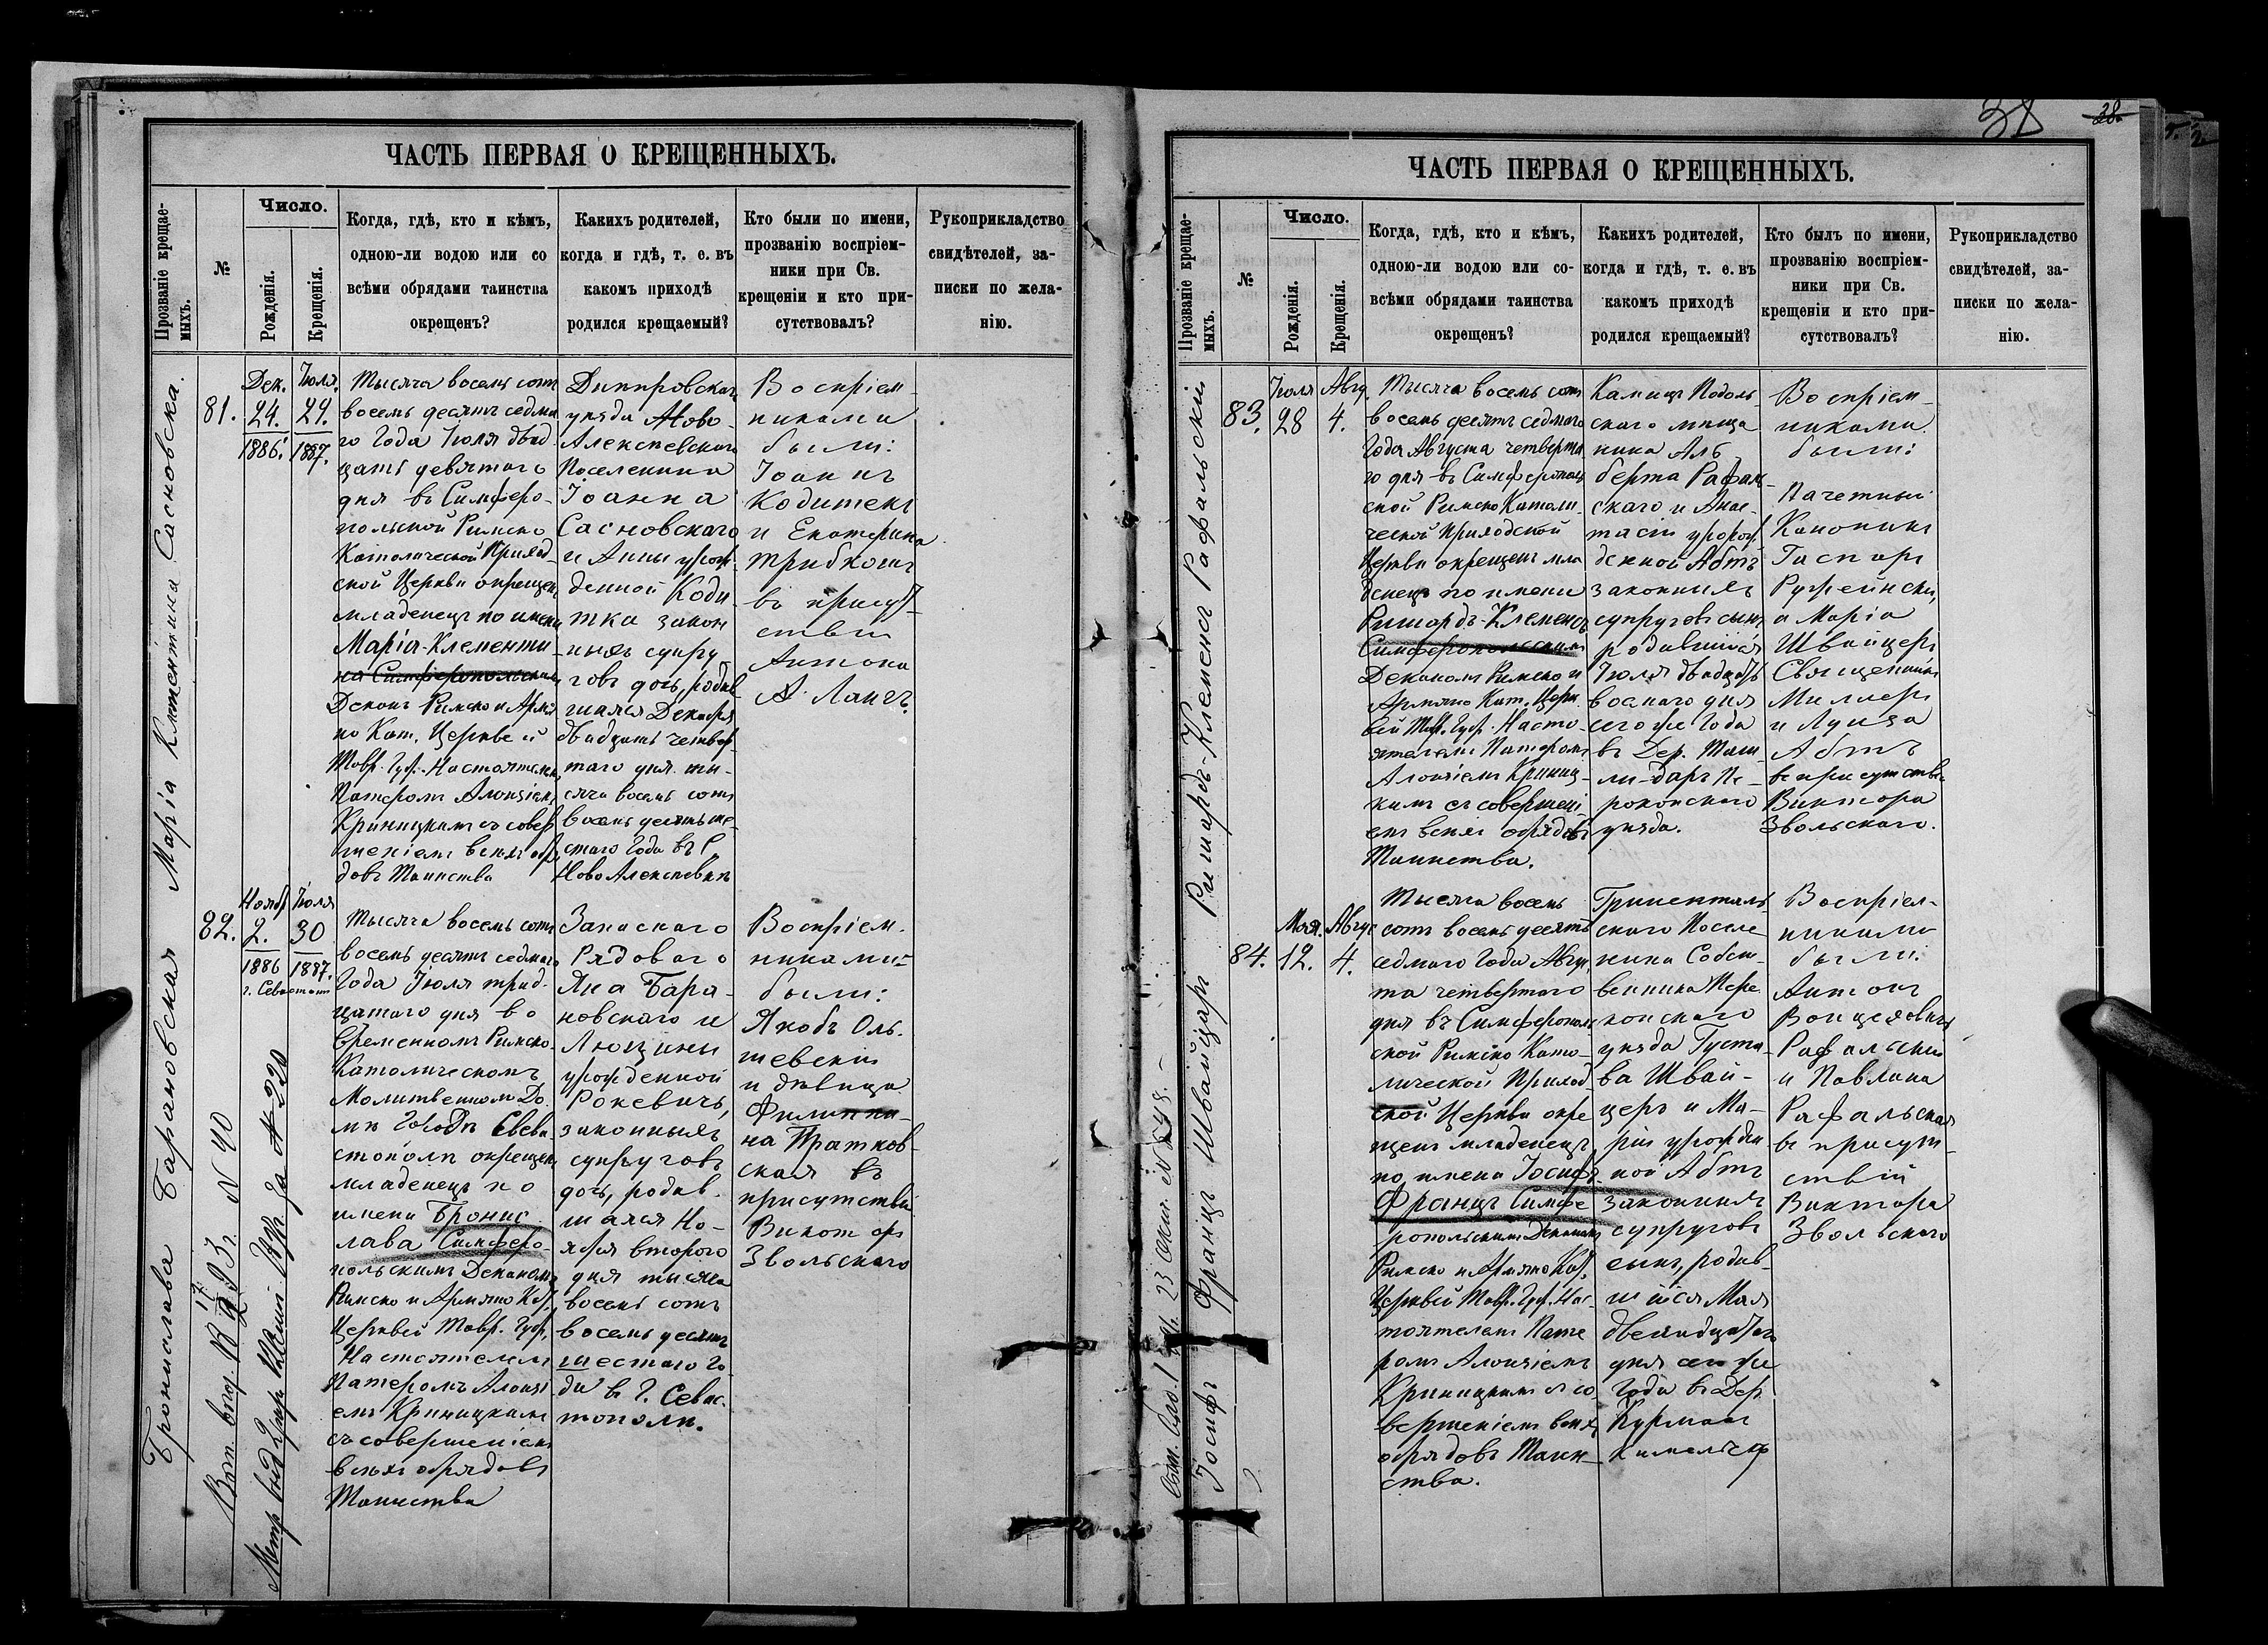 38
38
ЧАСТЬ ПЕРВАЯ О КРЕЩЕННЫХЪ.
Прозваніе крещае-
мыхъ.
№
Число.
Рожденія.
Крещенія.
Когда, гдѣ, кто и кѣмъ,
одною-ли водою или со
всѣми обрядами таинства
окрещенъ?
Какихъ родителей,
когда и гдѣ, т. е. въ
какомъ приходѣ
родился крещаемый?
Кто были по имени,
прозванію воспріем-
ники при Св.
крещеніи и кто при-
сутствовалъ?
Рукоприкладство
свидѣтелей, за-
писки по жела-
нію.
Марія Клементина Сасновска.
81.
Дек.
24.
1886.
Іюля.
29.
1887.
Тысяча восемь сотъ
восемь десятъ седма
го Года Іюля двад
цать девятаго
дня въ Симферо-
польской Римско
Католической Приход
ской Церкви окрещен
младенецъ по имени
Марія-Клементи
на Симферопольским
Декан Римско и Армя
но Кат. Церквей
Тавр. Губ. Настоятелем
Патеромъ Алоизіем
Криницкимъ съ совер
шеніемъ всѣхъ обря
довъ Таинства
Днипровскаго
уѣзда Ново-
Алексѣевскаго
Поселенина
Іоанна
Сасновскаго
и Анны урож-
денной Коди-
тка закон
ныхъ супру
говъ дочь, родив
шаяся Декабря
двадцать четвер-
таго дня ты-
сяча восемь сотъ
восемь десять ше-
стаго Года въ С.
Ново Алексѣевкѣ
Воспріем-
никами
были:
Іоаннъ
Кодитекъ
и Екатерина
Трибкошъ
въ присут-
ствіи
Антона
А. Лангъ.
Бронислава Барановская
82.
Нояб
2.
1886
г. Севастополь
Іюля
30
1887.
Тысяча восемь сотъ
восемь десятъ седмаго
Года Іюля трид-
цатаго дня во
временномъ Римско-
Католическомъ
Молитвенномъ До-
мѣ Городѣ Сева-
стополѣ окрещен
младенецъ по
имени Бронис
лава Симферо-
польскимъ Деканом
Римско и Армяно Кат.
Церквей Тавр. Губ.
Настоятелем
Патеромъ Алоизі
емъ Криницкимъ
съ совершеніем
всѣхъ обрядовъ
Таинства
Запаснаго
Рядоваго
Яна Бара-
новскаго и
Люцины
урожденной
Рокевичъ,
законныхъ
супруговъ
дочь, родив-
шаяся Но-
ября втораго
дня тысяча
восемь сотъ
восемь десятъ
шестаго Го-
да въ Г. Севас-
тополѣ.
Воспріем-
никами
были:
Якобъ Оль-
шевскій
и дѣвица
Филиппи-
на Пратков-
ская въ
присутствіи
Виктора
Звольскаго
ЧАСТЬ ПЕРВАЯ О КРЕЩЕННЫХЪ.
Прозваніе крещае-
мыхъ.
№
Число.
Рожденія.
Крещенія.
Когда, гдѣ, кто и кѣмъ,
одною-ли водою или со-
всѣми обрядами таинства
окрещенъ?
Какихъ родителей,
когда и гдѣ, т. е. въ
какомъ приходѣ
родился крещаемый?
Кто былъ по имени,
прозванію воспріем-
ники при Св.
крещеніи и кто при-
сутствовалъ?
Рукоприкладство
свидѣтелей, за-
писки по жела-
нію.
Ришардъ-Клеменсъ Рафальскій
83.
Іюля
28
Авгу.
4.
Тысяча восемь сотъ
восемь десятъ седмаго
Года Августа четверта
го дня въ Симферополь
ской Римско Католи
ческой Приходской
Церкви окрещенъ мла
денецъ по имени
Ришардъ-Клеменсъ
Симферопольским
Деканомъ Римско и
Армяно Кат. Церк
вей Тав. Губ. Насто-
ятелемъ Патеромъ
Алоизіемъ Криниц-
кимъ съ совершені
емъ всѣхъ обрядовъ
Таинства.
Каменц Подоль-
скаго мѣща
нина Аль
берта Рафаль-
скаго и Анас-
тасіи урож-
денной Абтъ
законныхъ
супруговъ сынъ
родившійся
Іюля двадцать
восмаго дня
сего же Года
въ Дер. Таш
лы-даръ Пе-
рекопскаго
уѣзда.
Воспріем-
никами
были:
Пачетный
Каноникъ
Гаспаръ
Руфейнскій,
и Марія
Швайцеръ
Священникъ
Миллеръ
и Луиза
Абтъ
въ присутствіи
Виктора
Звольскаго.
Іосифъ Францъ Швайцаръ
84.
Мая.
12.
Авгус
4.
Тысяча восемь
сотъ восемь десятъ
седмаго Года Авгус
та четвертаго
дня въ Симферополь
ской Римско Като-
лической Приход
ской Церкви окре
щенъ младенецъ
по имени Іосифъ
Францъ Симфе
ропольскимъ Деканом
Римско и Армяно Кат.
Церквей Тавр. Губ. Нас-
тоятелемъ Пате
ромъ Алоизіемъ
Криницкимъ съ со-
вершеніемъ всѣхъ
обрядовъ Таин-
ства.
скаго Поселе
нина Собст-
венника Пере
копскаго
уѣзда Густа-
ва Швай-
церъ и Ма-
ріи урожден
ной Абтъ
законныхъ
супруговъ
сынъ, родив-
шійся Мая
двенадцатаго
дня сего же
Года въ Дер.
Курман
Кемельчи
Воспріем-
никами
были:
Антонъ
Войцеховичъ
Рафальскій
и Павлина
Рафальская
въ присут-
ствіи
Виктора
Звольскаго